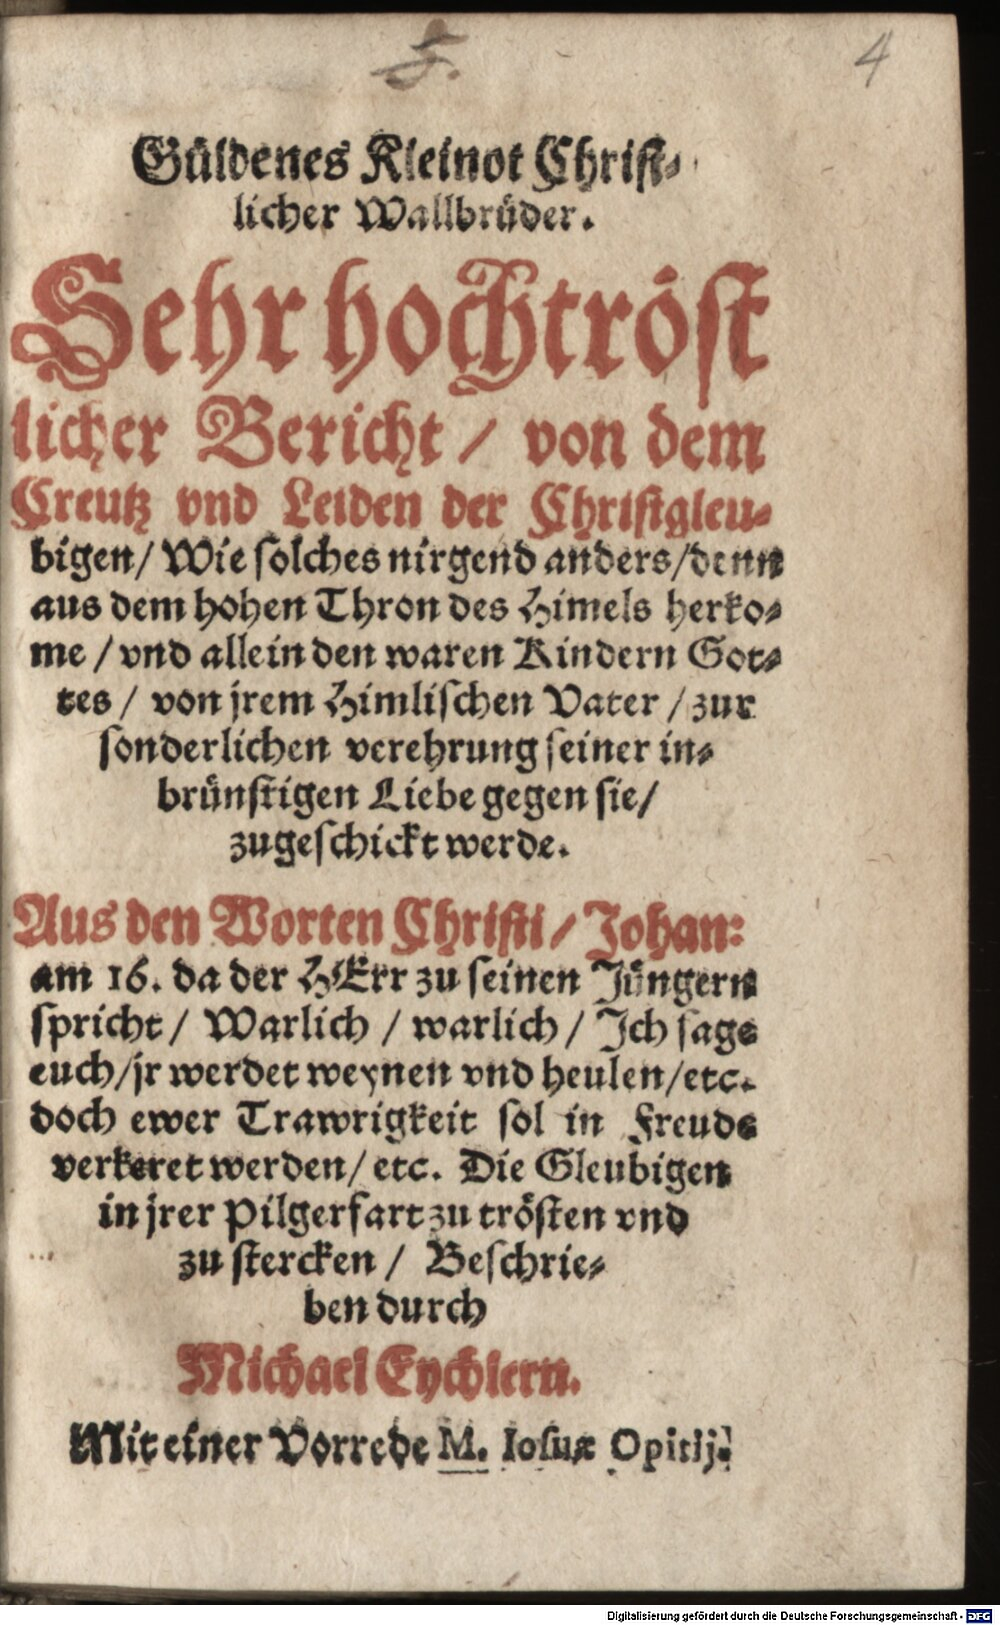 4
Güldenes Kleinot Christ⸗
licher Wallbrüder.
Sehr hochtröst
licher Bericht / von dem
Creutz vnd Leiden der Christgleu⸗
bigen / Wie solches nirgend anders / denn
aus dem hohen Thron des Himels herko⸗
me / vnd allein den waren Kindern Got⸗
tes / von jrem Himlischen Vater / zur
sonderlichen verehrung seiner in⸗
brünstigen Liebe gegen sie /
zugeschickt werde.
Aus den Worten Christi / Johan:
am 16. da der HErr zu seinen Jüngern
spricht / Warlich / warlich / Ich sage
euch / jr werdet weynen vnd heulen / etc.
doch ewer Trawrigkeit sol in Freude
verkeret werden / etc. Die Gleubigen
in jrer Pilgerfart zu trösten vnd
zu stercken / Beschrie⸗
ben durch
Michael Eychlern.
Mit einer Vorrede M. Iosuæ Opitij.
Digitalisierung gefördert durch die Deutsche Forschungsgemeinschaft - DFG